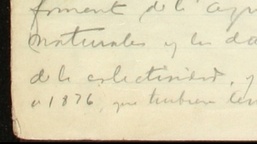 foment de la agri
naturales y las da
de la colectividad, y
a 1876, que hubiera ten